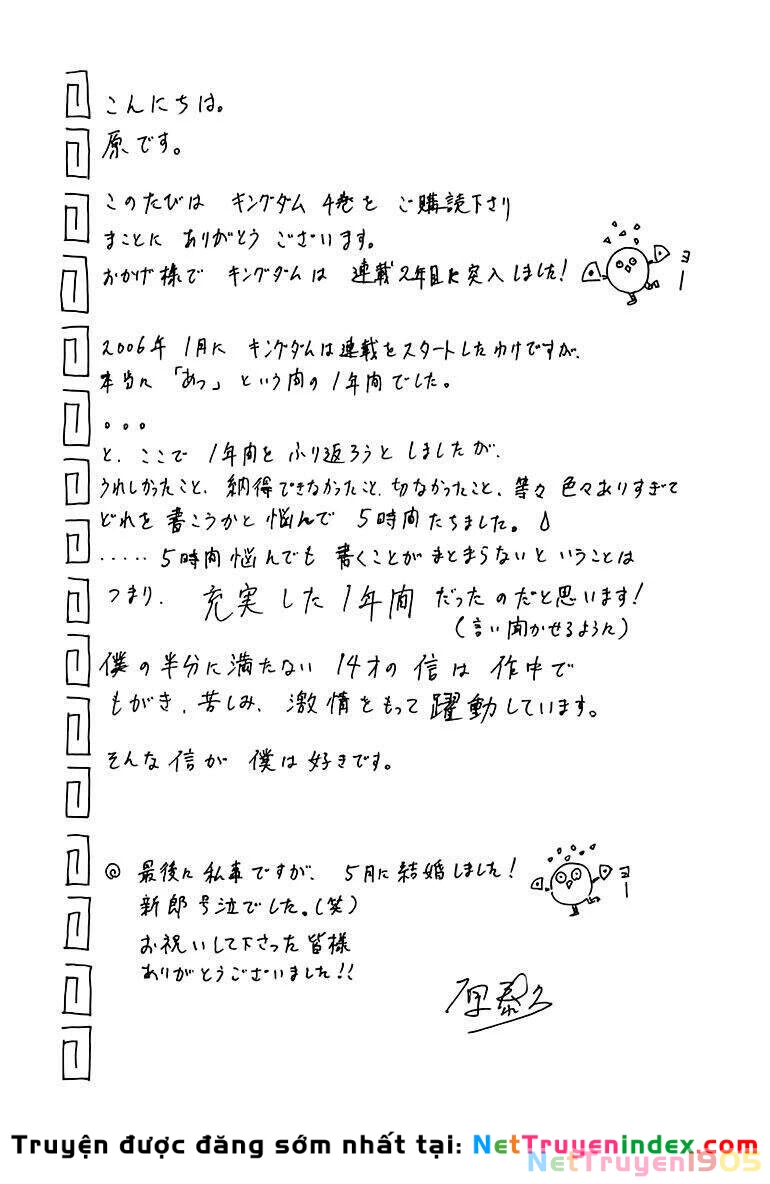 こんにちは。
原です。
このたびは キングダム 4巻を ご購読下さり
まことに ありがとう ございます。
おかげ様で キングダムは 連載2年目に突入しました!
ヨー
2006年 1月に キングダムは連載をスタートしたわけですが、
本当に「あっ」という間の1年間でした。
。。。
と、ここで 1年間を ふり返ろうと しましたが、
うれしかったこと、納得できなかったこと、切なかったこと、等々 色々ありすぎて
どれを 書こうかと 悩んで 5時間たちました。
.....5時間悩んでも 書くことが まとまらないと いうことは
つまり、充実した1年間 だったのだと思います!
(言い聞かせるように)
僕の半分に満たない 14才の 信は 作中で
もがき、苦しみ、激情をもって躍動しています。
そんな信が 僕は好きです。
◎ 最後に 私事ですが、5月に結婚しました!
ヨー
新郎号泣でした。(笑)
お祝いして下さった皆様
ありがとうございました!!
原泰久
Truyện được đăng sớm nhất tại: NetTruyenindex.com
NetTruyen1905